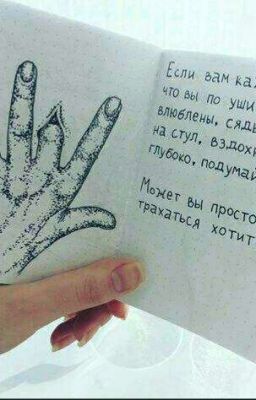 Если вам ка
что вы по уши
влюблены, сядь
на стул, вздохн
глубоко, подумай
Может вы просто
трахаться хотит